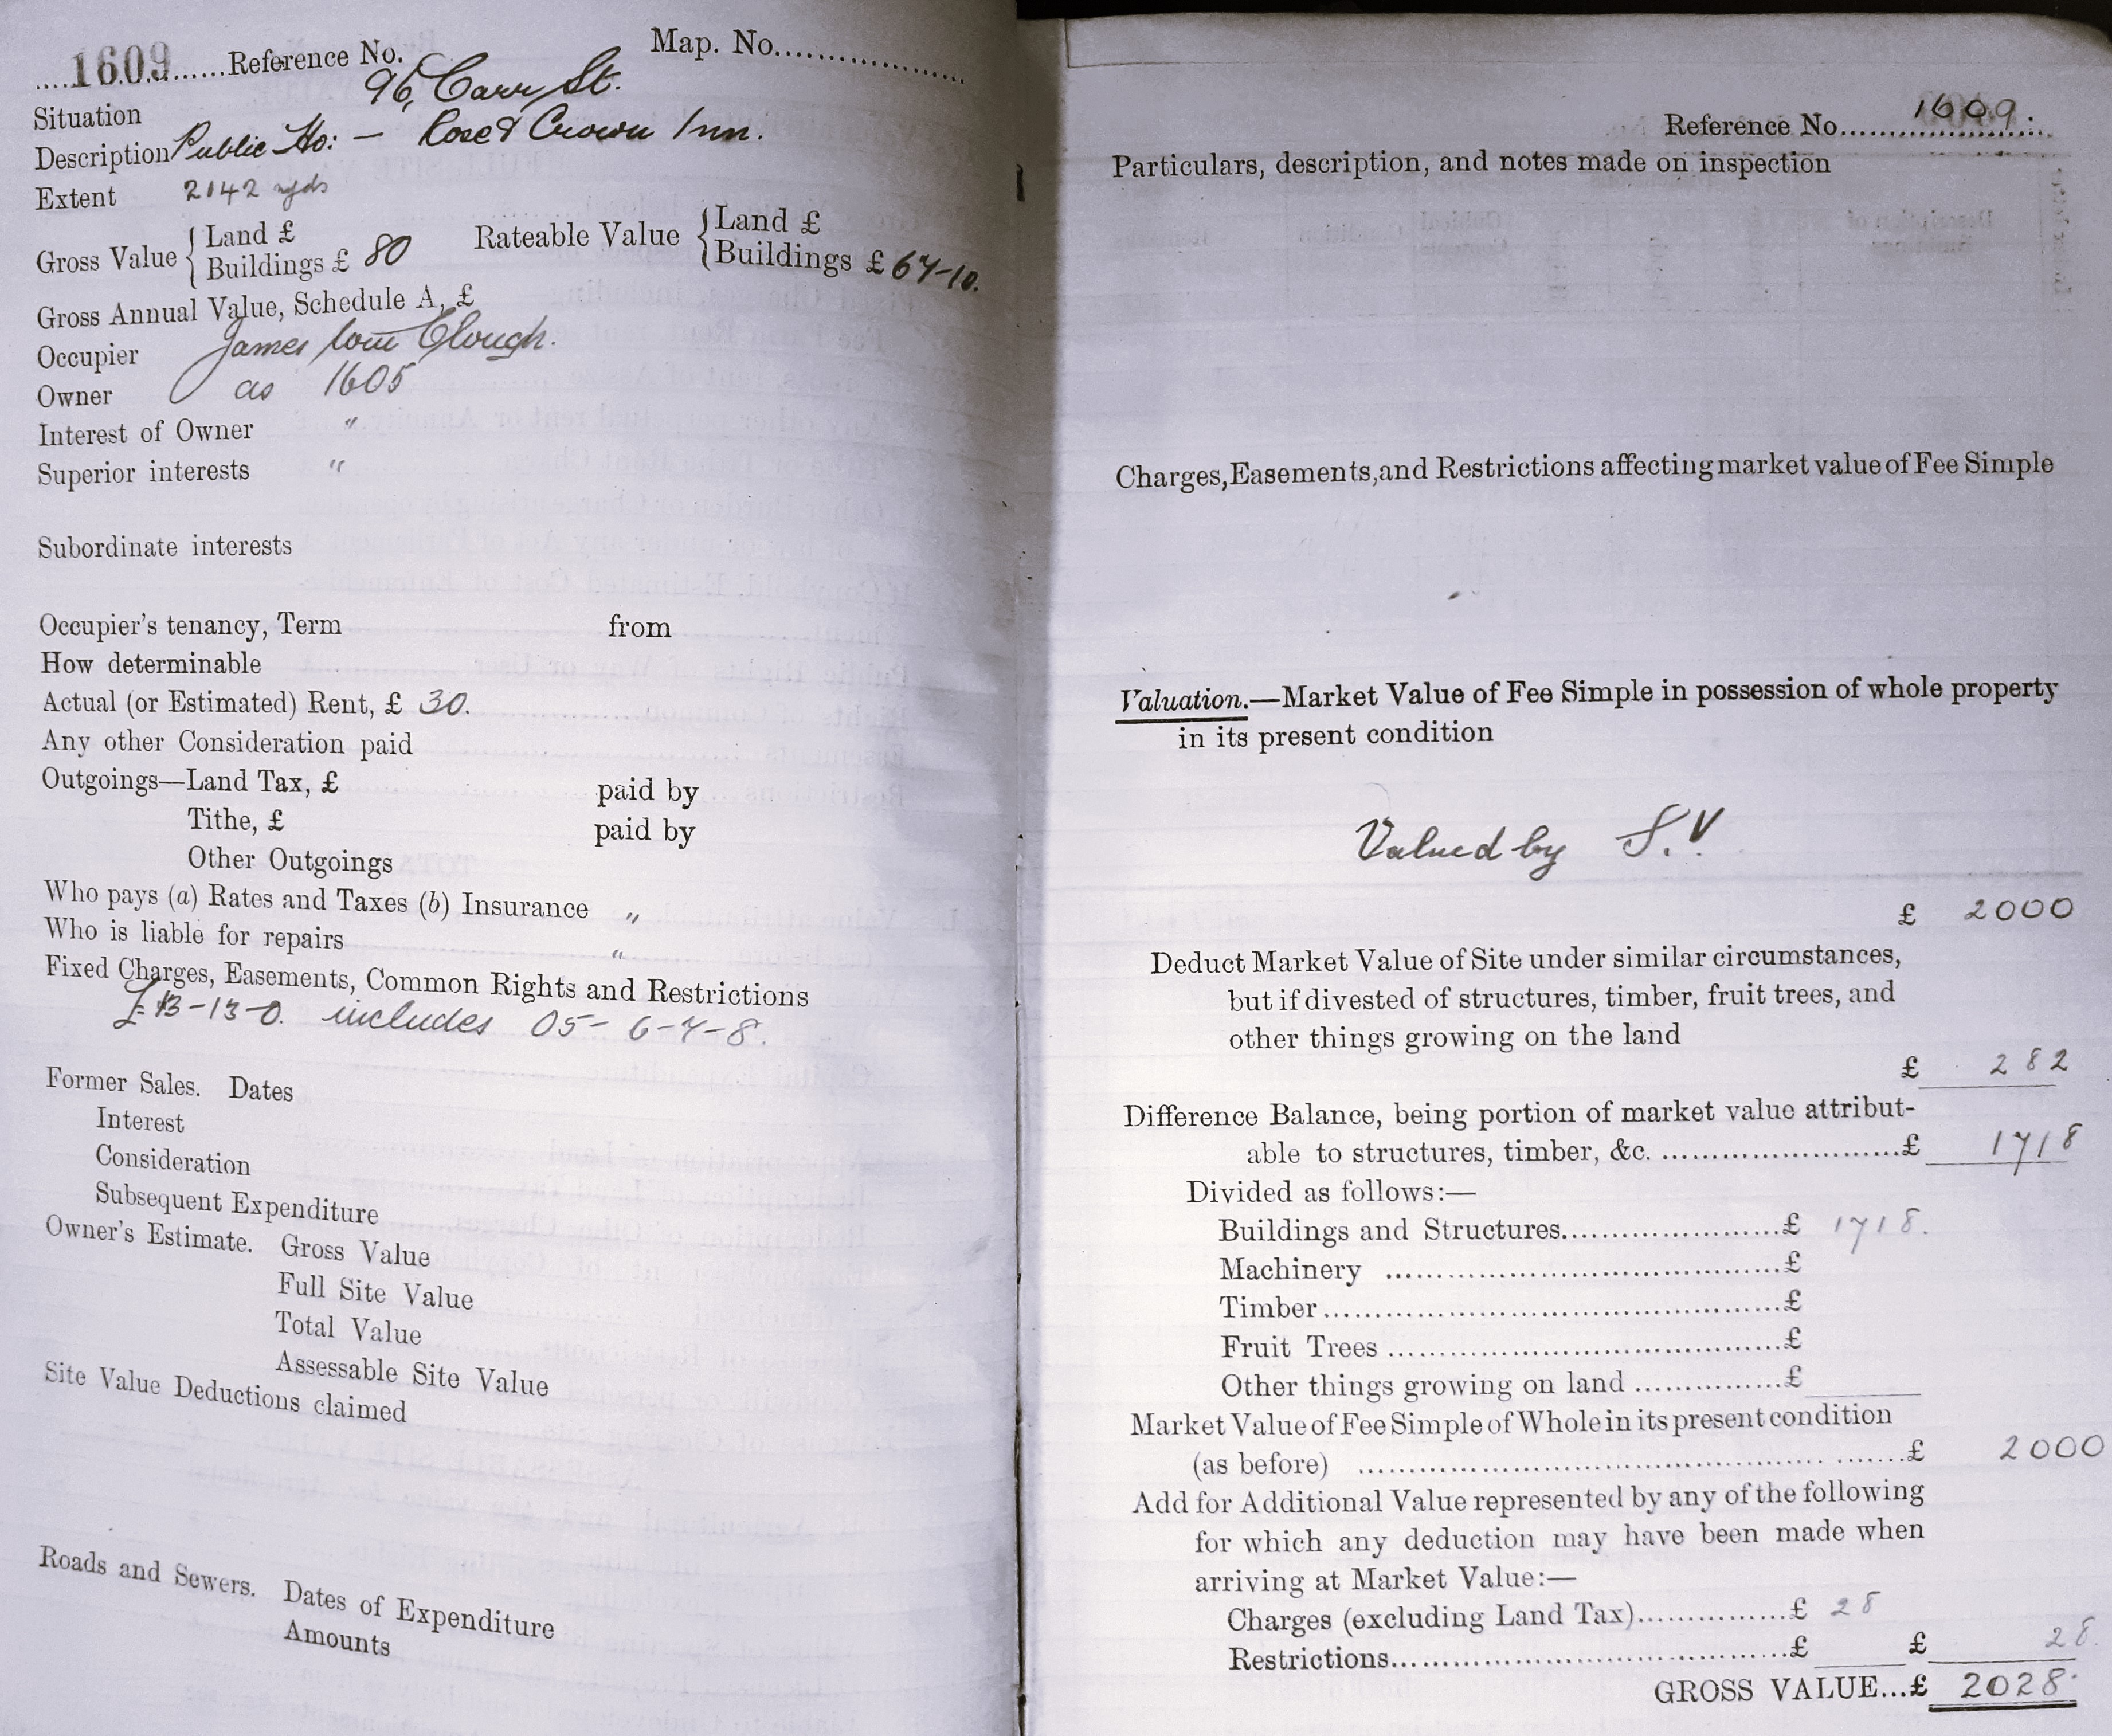 1609 Reference No. Map. No.
Situation 96, Carr St.
Description Public Ho: — Rose & Crown Inn.
Extent 2142 yds
Gross Value { Land £ Rateable Value { Land £
Buildings £ 80 Buildings £ 67-10.
Gross Annual Value, Schedule A, £
Occupier James Clough.
Owner as 1605
Interest of Owner "
Superior interests "
Subordinate interests
Occupier's tenancy, Term from
How determinable
Actual (or Estimated) Rent, £ 30.
Any other Consideration paid
Outgoings—Land Tax, £ paid by
Tithe, £ paid by
Other Outgoings
Who pays (a) Rates and Taxes (b) Insurance "
Who is liable for repairs "
Fixed Charges, Easements, Common Rights and Restrictions
£13-13-0. includes 05- 6-7-8.
Former Sales. Dates
Interest
Consideration
Subsequent Expenditure
Owner's Estimate. Gross Value
Full Site Value
Total Value
Assessable Site Value
Site Value Deductions claimed
Roads and Sewers. Dates of Expenditure
Amounts
Reference No. 1609
Particulars, description, and notes made on inspection
Charges, Easements, and Restrictions affecting market value of Fee Simple
Valuation.—Market Value of Fee Simple in possession of whole property
in its present condition
Valued by S.V
£ 2000
Deduct Market Value of Site under similar circumstances,
but if divested of structures, timber, fruit trees, and
other things growing on the land
£ 282
Difference Balance, being portion of market value attribut-
able to structures, timber, &c. £ 1718
Divided as follows:—
Buildings and Structures £ 1718.
Machinery £
Timber £
Fruit Trees £
Other things growing on land £
Market Value of Fee Simple of Whole in its present condition
(as before) £ 2000
Add for Additional Value represented by any of the following
for which any deduction may have been made when
arriving at Market Value:—
Charges (excluding Land Tax) £ 28
Restrictions £ £ 28.
GROSS VALUE...£ 2028.